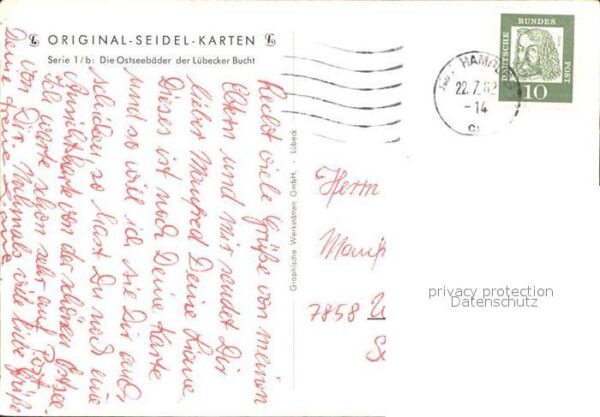 ORIGINAL-SEIDEL-KARTEN
Serie 1/b: Die Ostseebäder der Lübecker Bucht
Recht viele Grüße von meinen
Eltern und mir sendet Dir
lieber Manfred Deine Liane
Dieses ist nach Deine Karte
und so will ich sie Dir auch
schicken, so hast Du noch eine
Ansichtskarte von der schönen Ostsee.
Ich warte schon sehr auf Post
von Dir. Nochmals viele liebe Grüße
Deine Liane
Graphische Werkstätten GmbH., Lübeck
DEUTSCHE BUNDES POST
10
22.7.62
-14
Herrn
7858
privacy protection
Datenschutz